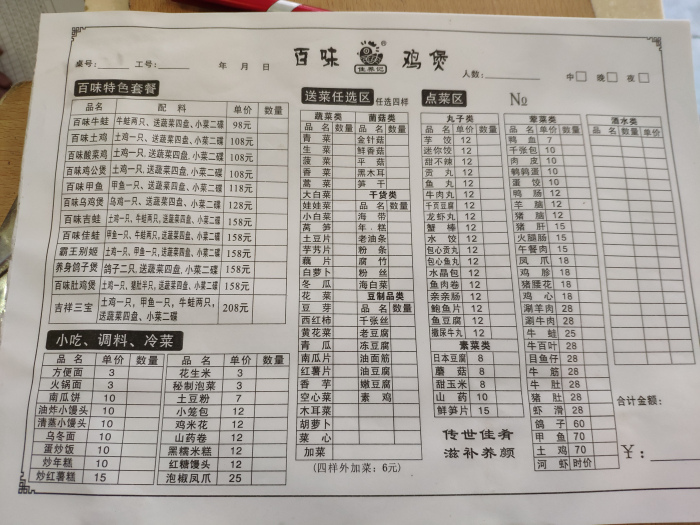 百味 佳养记 ® 鸡煲
桌号: 工号: 年 月 日
人数: 中□ 晚□ 夜□
百味特色套餐
品名 配料 单价 数量
百味牛蛙 牛蛙两只、送蔬菜四盘、小菜二碟 98元
百味土鸡 土鸡一只、送蔬菜四盘、小菜二碟 108元
百味酸菜鸡 土鸡一只、送蔬菜四盘、小菜二碟 108元
百味鸡公煲 土鸡一只、送蔬菜四盘、小菜二碟 108元
百味甲鱼 甲鱼一只、送蔬菜四盘、小菜二碟 118元
百味乌鸡煲 乌鸡一只、送蔬菜四盘、小菜二碟 128元
百味吉蛙 土鸡一只、牛蛙两只、送蔬菜四盘、小菜二碟 158元
百味佳蛙 甲鱼一只、牛蛙两只、送蔬菜四盘、小菜二碟 158元
霸王别姬 土鸡一只、甲鱼一只、送蔬菜四盘、小菜二碟 158元
养身鸽子煲 鸽子二只、送蔬菜四盘、小菜二碟 158元
百味肚鸡煲 土鸡一只、猪肚半只、送蔬菜四盘、小菜二碟 158元
吉祥三宝 土鸡一只，甲鱼一只，牛蛙两只，
送蔬菜四盘、小菜二碟 208元
小吃、调料、冷菜
品名 单价 数量 品名 单价 数量
方便面 3 花生米 3
火锅面 3 秘制泡菜 3
南瓜饼 10 土豆粉 7
油炸小馒头 10 小笼包 12
清蒸小馒头 10 鸡米花 12
乌冬面 10 山药卷 12
蛋炒饭 10 黑糯米糕 12
炒年糕 10 红糖馒头 12
炒红薯糕 15 泡椒凤爪 25
送菜任选区 任选四样
蔬菜类 菌菇类
品名 数量 品名 数量
青菜 金针菇
生菜 鲜香菇
菠菜 平菇
香菜 黑木耳
蒿菜 笋干
大白菜 干货类
娃娃菜 品名 数量
小白菜 海带
莴笋 年糕
土豆片 老油条
芋艿片 粉条
藕片 腐竹
白萝卜 粉丝
冬瓜 海白菜
花菜 豆制品类
豆芽 品名 数量
西红柿 千张丝
黄花菜 老豆腐
青瓜 冻豆腐
南瓜片 油面筋
红薯片 油豆腐
香芋 嫩豆腐
空心菜 素鸡
木耳菜
胡萝卜
菜心
加菜
(四样外加菜: 6元)
点菜区 №
丸子类
品名 单价 数量
芋饺 12
迷你饺 12
甜不辣 12
贡丸 12
鱼丸 12
牛肉丸 12
千页豆腐 12
龙虾丸 12
蟹棒 12
水饺 12
包心贡丸 12
包心鱼丸 12
水晶包 12
鱼肉卷 12
亲亲肠 12
鲍鱼片 12
鱼豆腐 12
撒尿牛丸 12
素菜类
日本豆腐 8
蘑菇 8
甜玉米 8
山药 10
鲜笋片 15
传世佳肴
滋补养颜
荤菜类
品名 单价 数量
鸭血 7
千张包 10
肉皮 10
鹌鹑蛋 10
蛋饺 10
鸭肠 12
羊脑 12
猪脑 12
猪肝 15
火腿肠 15
午餐肉 15
凤爪 18
鸡胗 18
猪腰花 18
鸡心 18
涮羊肉 28
涮牛肉 28
牛蛙 28
牛百叶 28
目鱼仔 28
牛筋 28
牛肚 28
猪肚 28
虾滑 28
鸽子 60
甲鱼 70
土鸡 70
河虾 时价
酒水类
品名 数量 单价
合计金额:
¥: